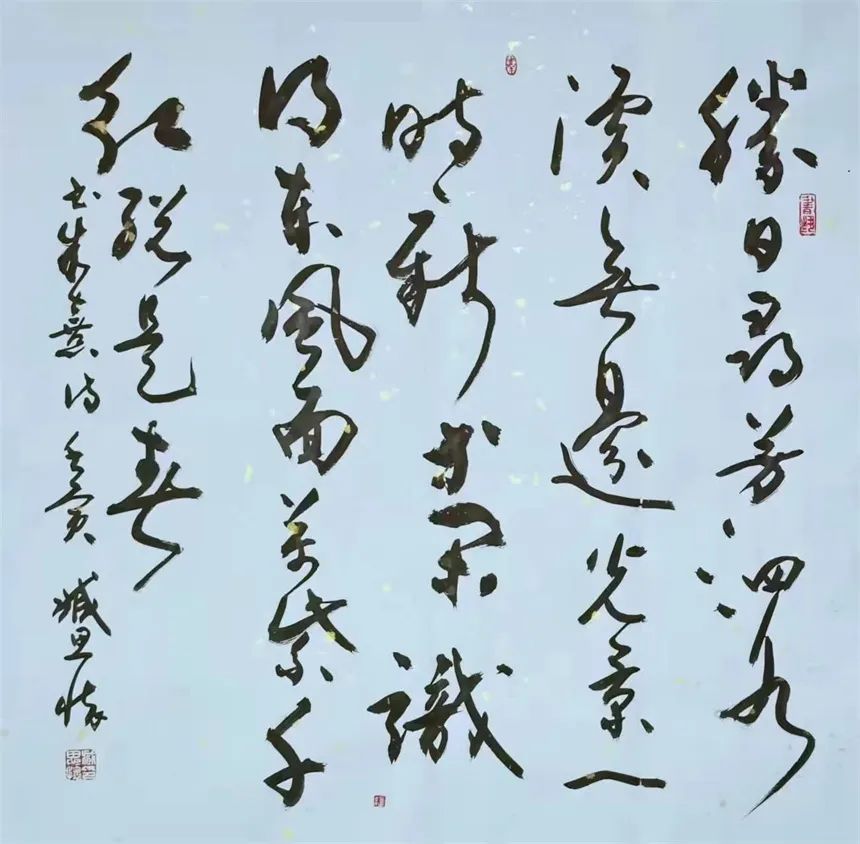 勝日尋芳泗水
濱無邊光景一
時新等閒識
得東風面萬紫千
紅總是春
書朱熹詩 壬寅 臧思懷